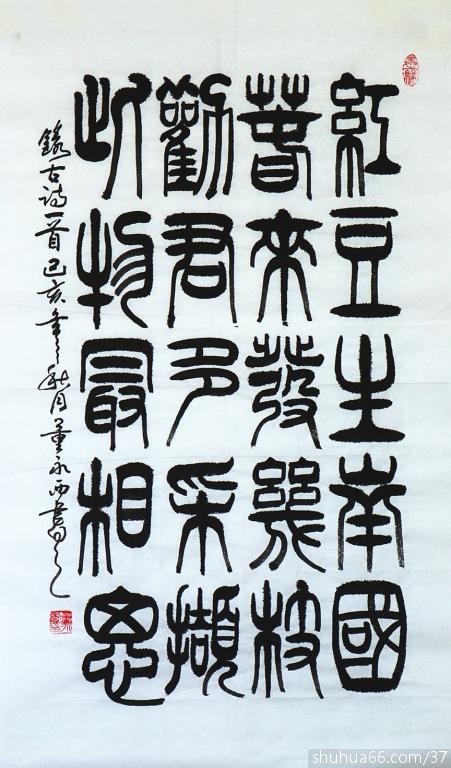 紅豆生南國
春來發幾枝
勸君多采擷
此物最相思
錄古詩一首己亥年之秋月董永西書之
shuhua66.com/37